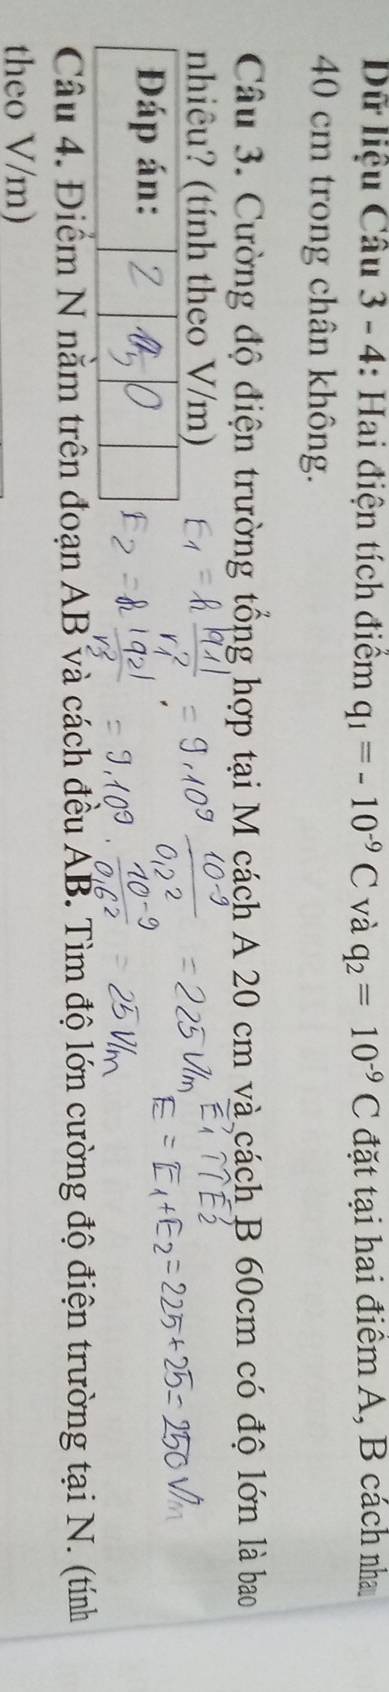 Dữ liệu Câu 3 - 4: Hai điện tích điểm q₁ = - 10⁻⁹ C và q₂ = 10⁻⁹ C đặt tại hai điểm A, B cách nhau
40 cm trong chân không.
Câu 3. Cường độ điện trường tổng hợp tại M cách A 20 cm và cách B 60cm có độ lớn là bao
nhiêu? (tính theo V/m)
E₁ = k |q₁| / r₁² = 9.10⁹ 10⁻⁹ / 0,2² = 225 V/m
E₁ ↑↑ E₂
Đáp án: 2 5 0
E₂ = k |q₂| / r₂² = 9.10⁹ . 10⁻⁹ / 0,6² = 25 V/m
E = E₁ + E₂ = 225 + 25 = 250 V/m
Câu 4. Điểm N nằm trên đoạn AB và cách đều AB. Tìm độ lớn cường độ điện trường tại N. (tính
theo V/m)